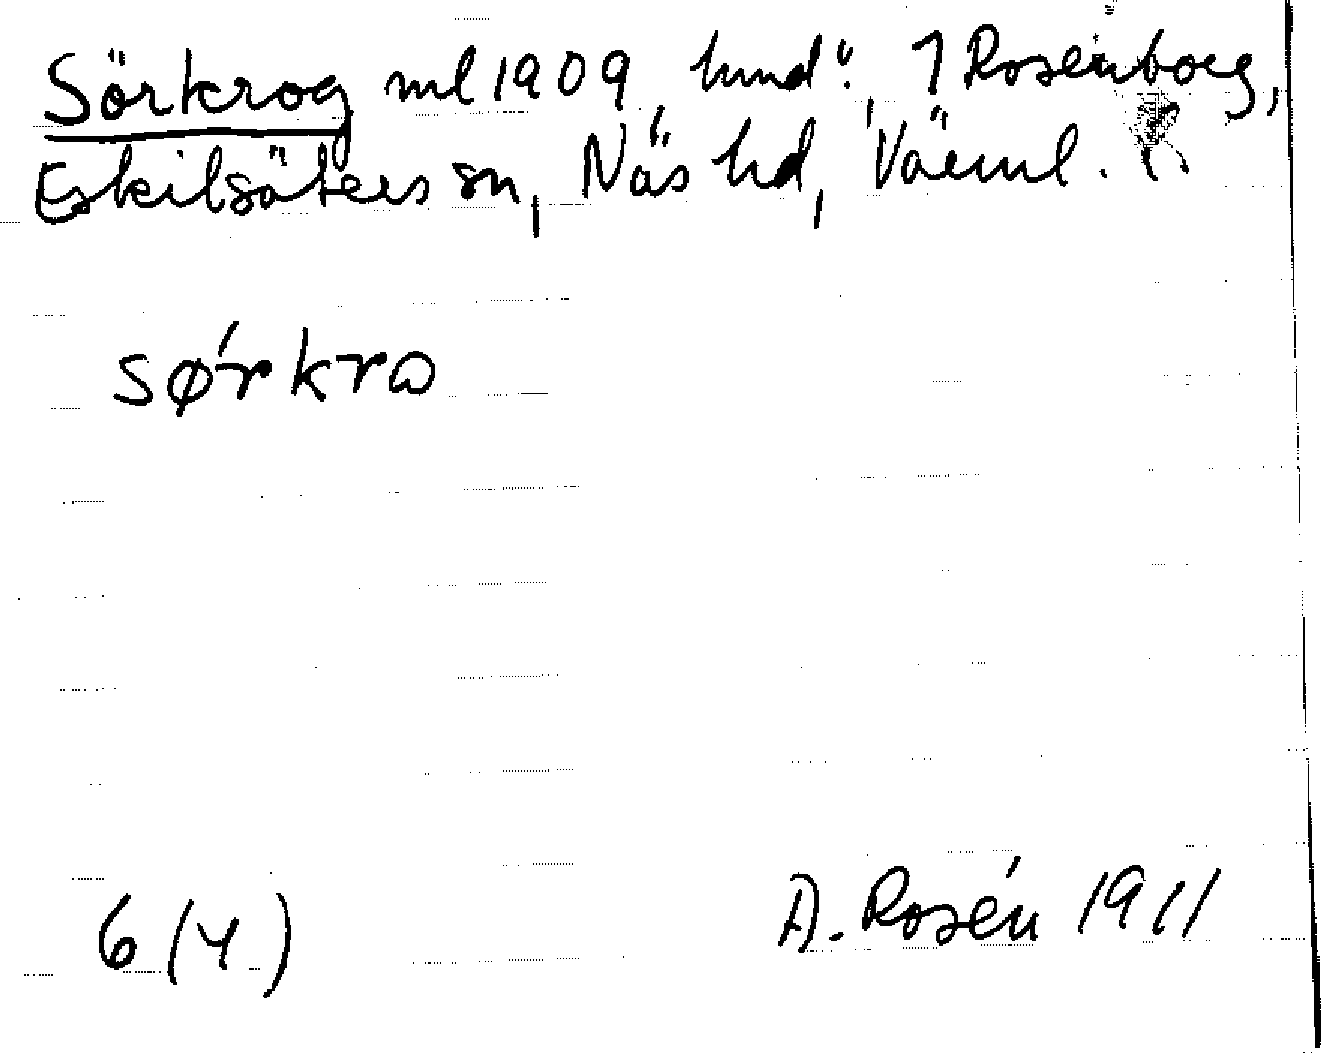 Sörkrog ml 1909, hmd": 1 Rosenborg,
Eskilsäters sn, Näs hd, Värml.
sø'rkrω
6 (4)
A. Rosén 1911